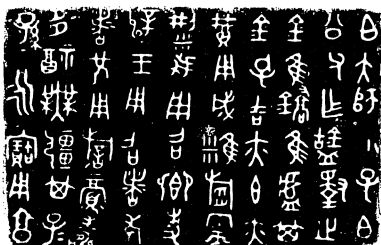 白大師小子白
公父乍簠擇之
金隹鐈隹盧其
金孔吉亦玄亦
黃用成糕稻需
梁我用召卿事
辟王用召者考
者兄用旂眉壽
多福無疆其子
孫永寶用享